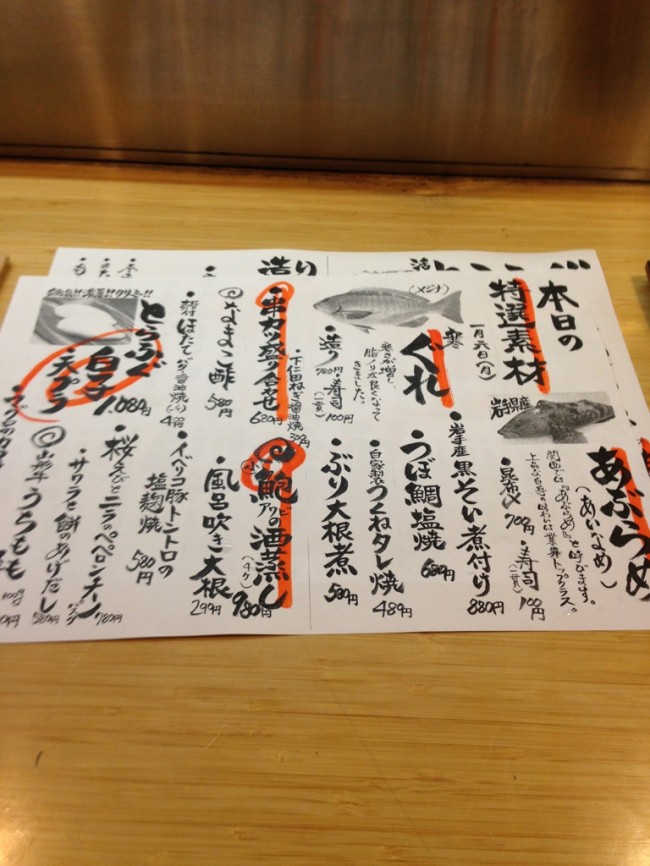 本日の
特選素材
一月六日(月)
岩手県産
あぶらめ
(あいなめ)
関西では『あぶらめ』と呼びます。
上品な白身の味わいは業界トップクラス。
・昆布〆 700円 ・寿司(一貫)100円
寒ぐれ
(メジナ)
寒さが増し、
脂ノリが良くなって
きました。
・造り 780円 ・寿司(一貫)100円
・岩手産黒そい煮付け 880円
・つぼ鯛塩焼 680円
・自家製つくねタレ焼 489円
・ぶり大根煮 580円
・串カツ盛り合せ 680円
・下仁田ねぎ醤油焼 399円
・なまこ酢 580円
・殻付ほたてバター醤油焼
とらふぐ
白子
天プラ
1,080円
小鮑の酒蒸し
アワビ
(4ケ)
980円
・風呂吹き大根 299円
・イベリコ豚トントロの
塩麹焼 580円
・桜えびとニラのペペロンチーノ 780円
・サワラと餅のあげだし 580円
うちもも
100g
造り